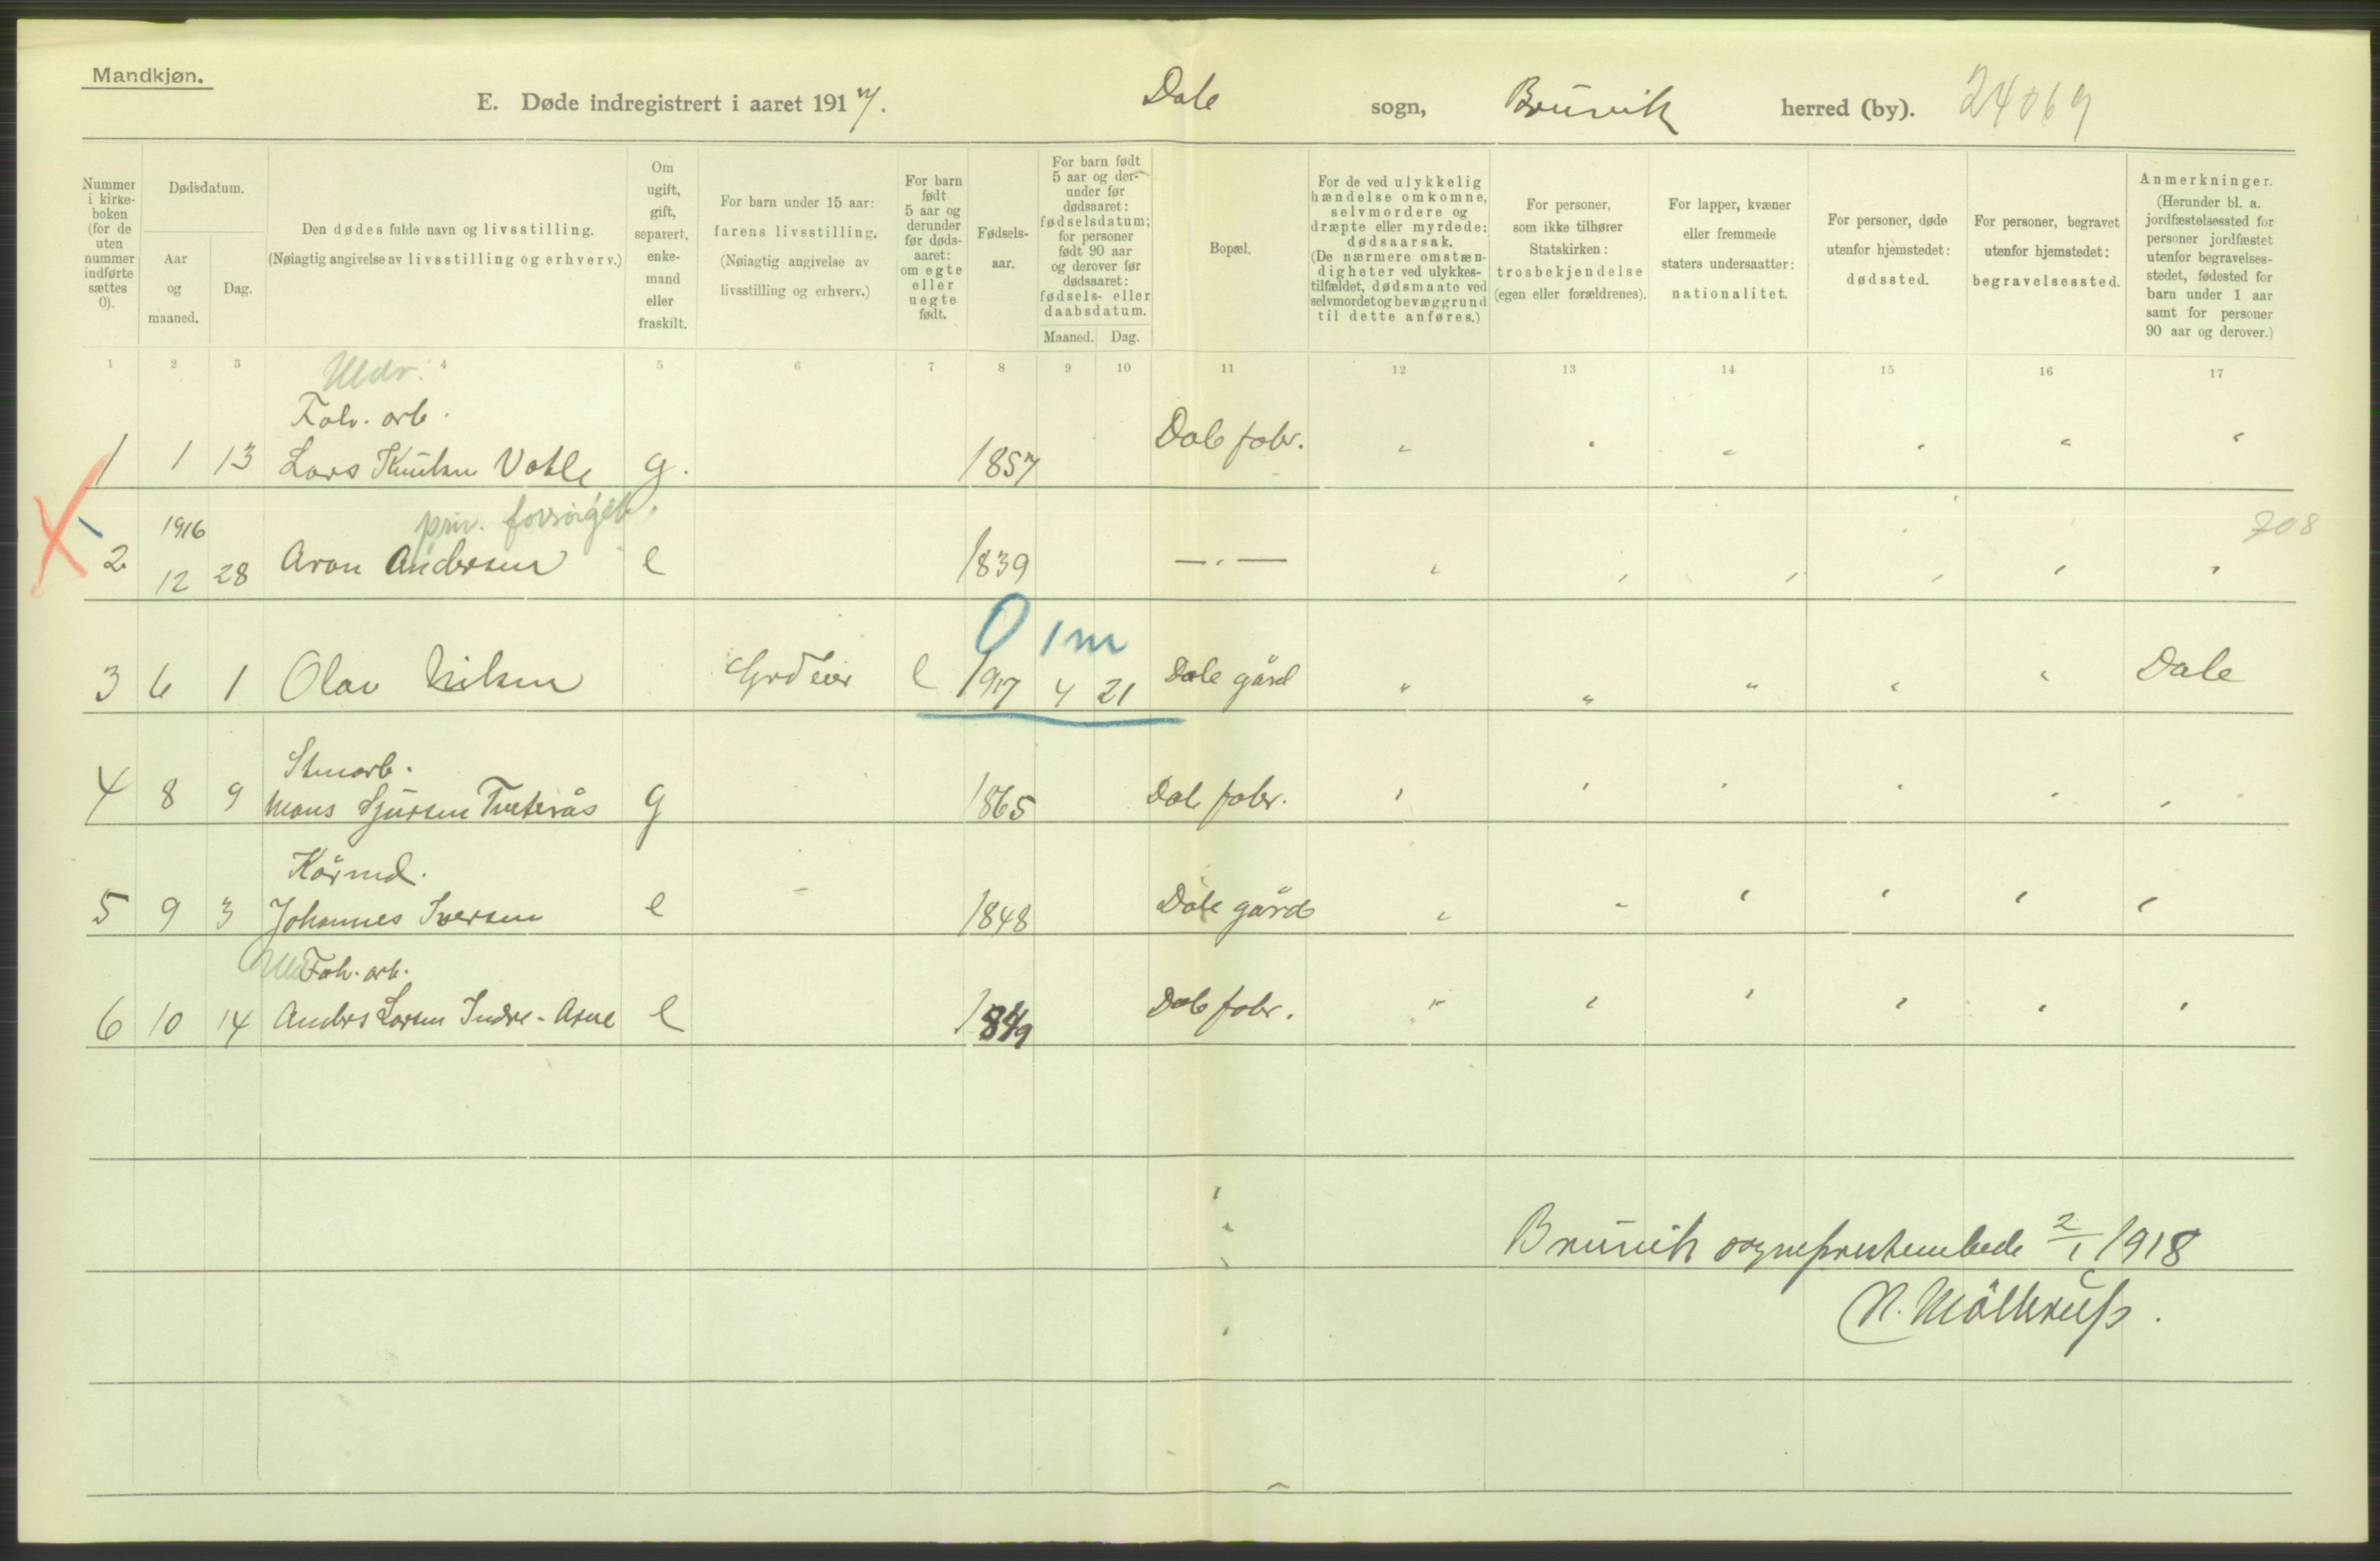 Mandkjøn.
E. Døde indregistrert i aaret 1917. Dale sogn, Bruvik herred (by). 24069
Nummer i kirkeboken (for de uten nummer indførte sættes 0).
Dødsdatum.
Aar og maaned.
Dag.
Den dødes fulde navn og livsstilling. (Nøiagtig angivelse av livsstilling og erhverv.)
Om ugift, gift, separert, enkemand eller fraskilt.
For barn under 15 aar: farens livsstilling. (Nøiagtig angivelse av livsstilling og erhverv.)
For barn født 5 aar og derunder før dødsaaret: om egte eller uegte født.
Fødselsaar.
For barn født 5 aar og derunder før dødsaaret: fødselsdatum; for personer født 90 aar og derover før dødsaaret: fødsels- eller daabsdatum.
Maaned. Dag.
Bopæl.
For de ved ulykkelig hændelse omkomne, selvmordere og dræpte eller myrdede: dødsaarsak. (De nærmere omstændigheter ved ulykkestilfældet, dødsmaate ved selvmordet og bevæggrund til dette anføres.)
For personer, som ikke tilhører Statskirken: trosbekjendelse (egen eller forældrenes).
For lapper, kvæner eller fremmede staters undersaatter: nationalitet.
For personer, døde utenfor hjemstedet: dødssted.
For personer, begravet utenfor hjemstedet: begravelsessted.
Anmerkninger. (Herunder bl. a. jordfæstelsessted for personer jordfæstet utenfor begravelsesstedet, fødested for barn under 1 aar samt for personer 90 aar og derover.)
1 2 3 4 5 6 7 8 9 10 11 12 13 14 15 16 17
Uldv.
Fabr. arb.
1 1 13 Lars Knutsen Vatle g. 1857 Dale fabr. " " " " " "
priv. forsørget. 708
1916
2 12 28 Aron Andersen e 1839 — " — " " " " " "
0 1 m
3 6 1 Olav Nilsen Grdeier e 1917 4 21 Dale gård " " " " " Dale
Stenarb.
4 8 9 Mons Sjursen Tveterås g 1865 Dale fabr. " " " " " "
Kårmd.
5 9 3 Johannes Iversen e 1848 Dale gård " " " " " "
Fab. arb.
6 10 14 Anders Larsen Indre-Arne e 1849 Dale fabr. " " " " " "
Bruvik sogneprestembede 2/1 1918